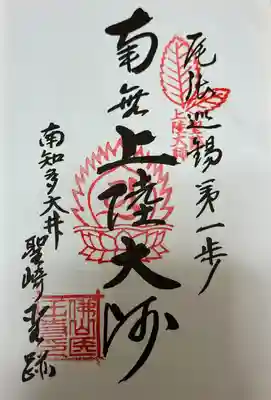 尾張巡錫第一歩
南無上陸大師
南知多大井
聖崎聖跡
上陸大師